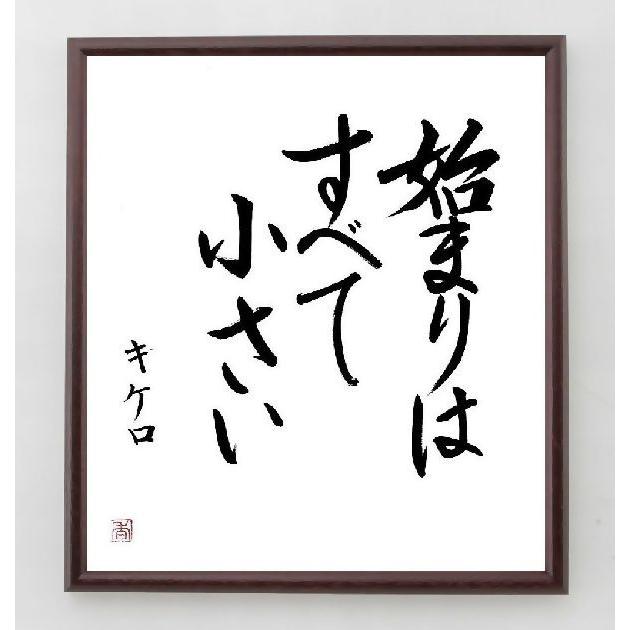 始まりは
すべて
小さい
キケロ